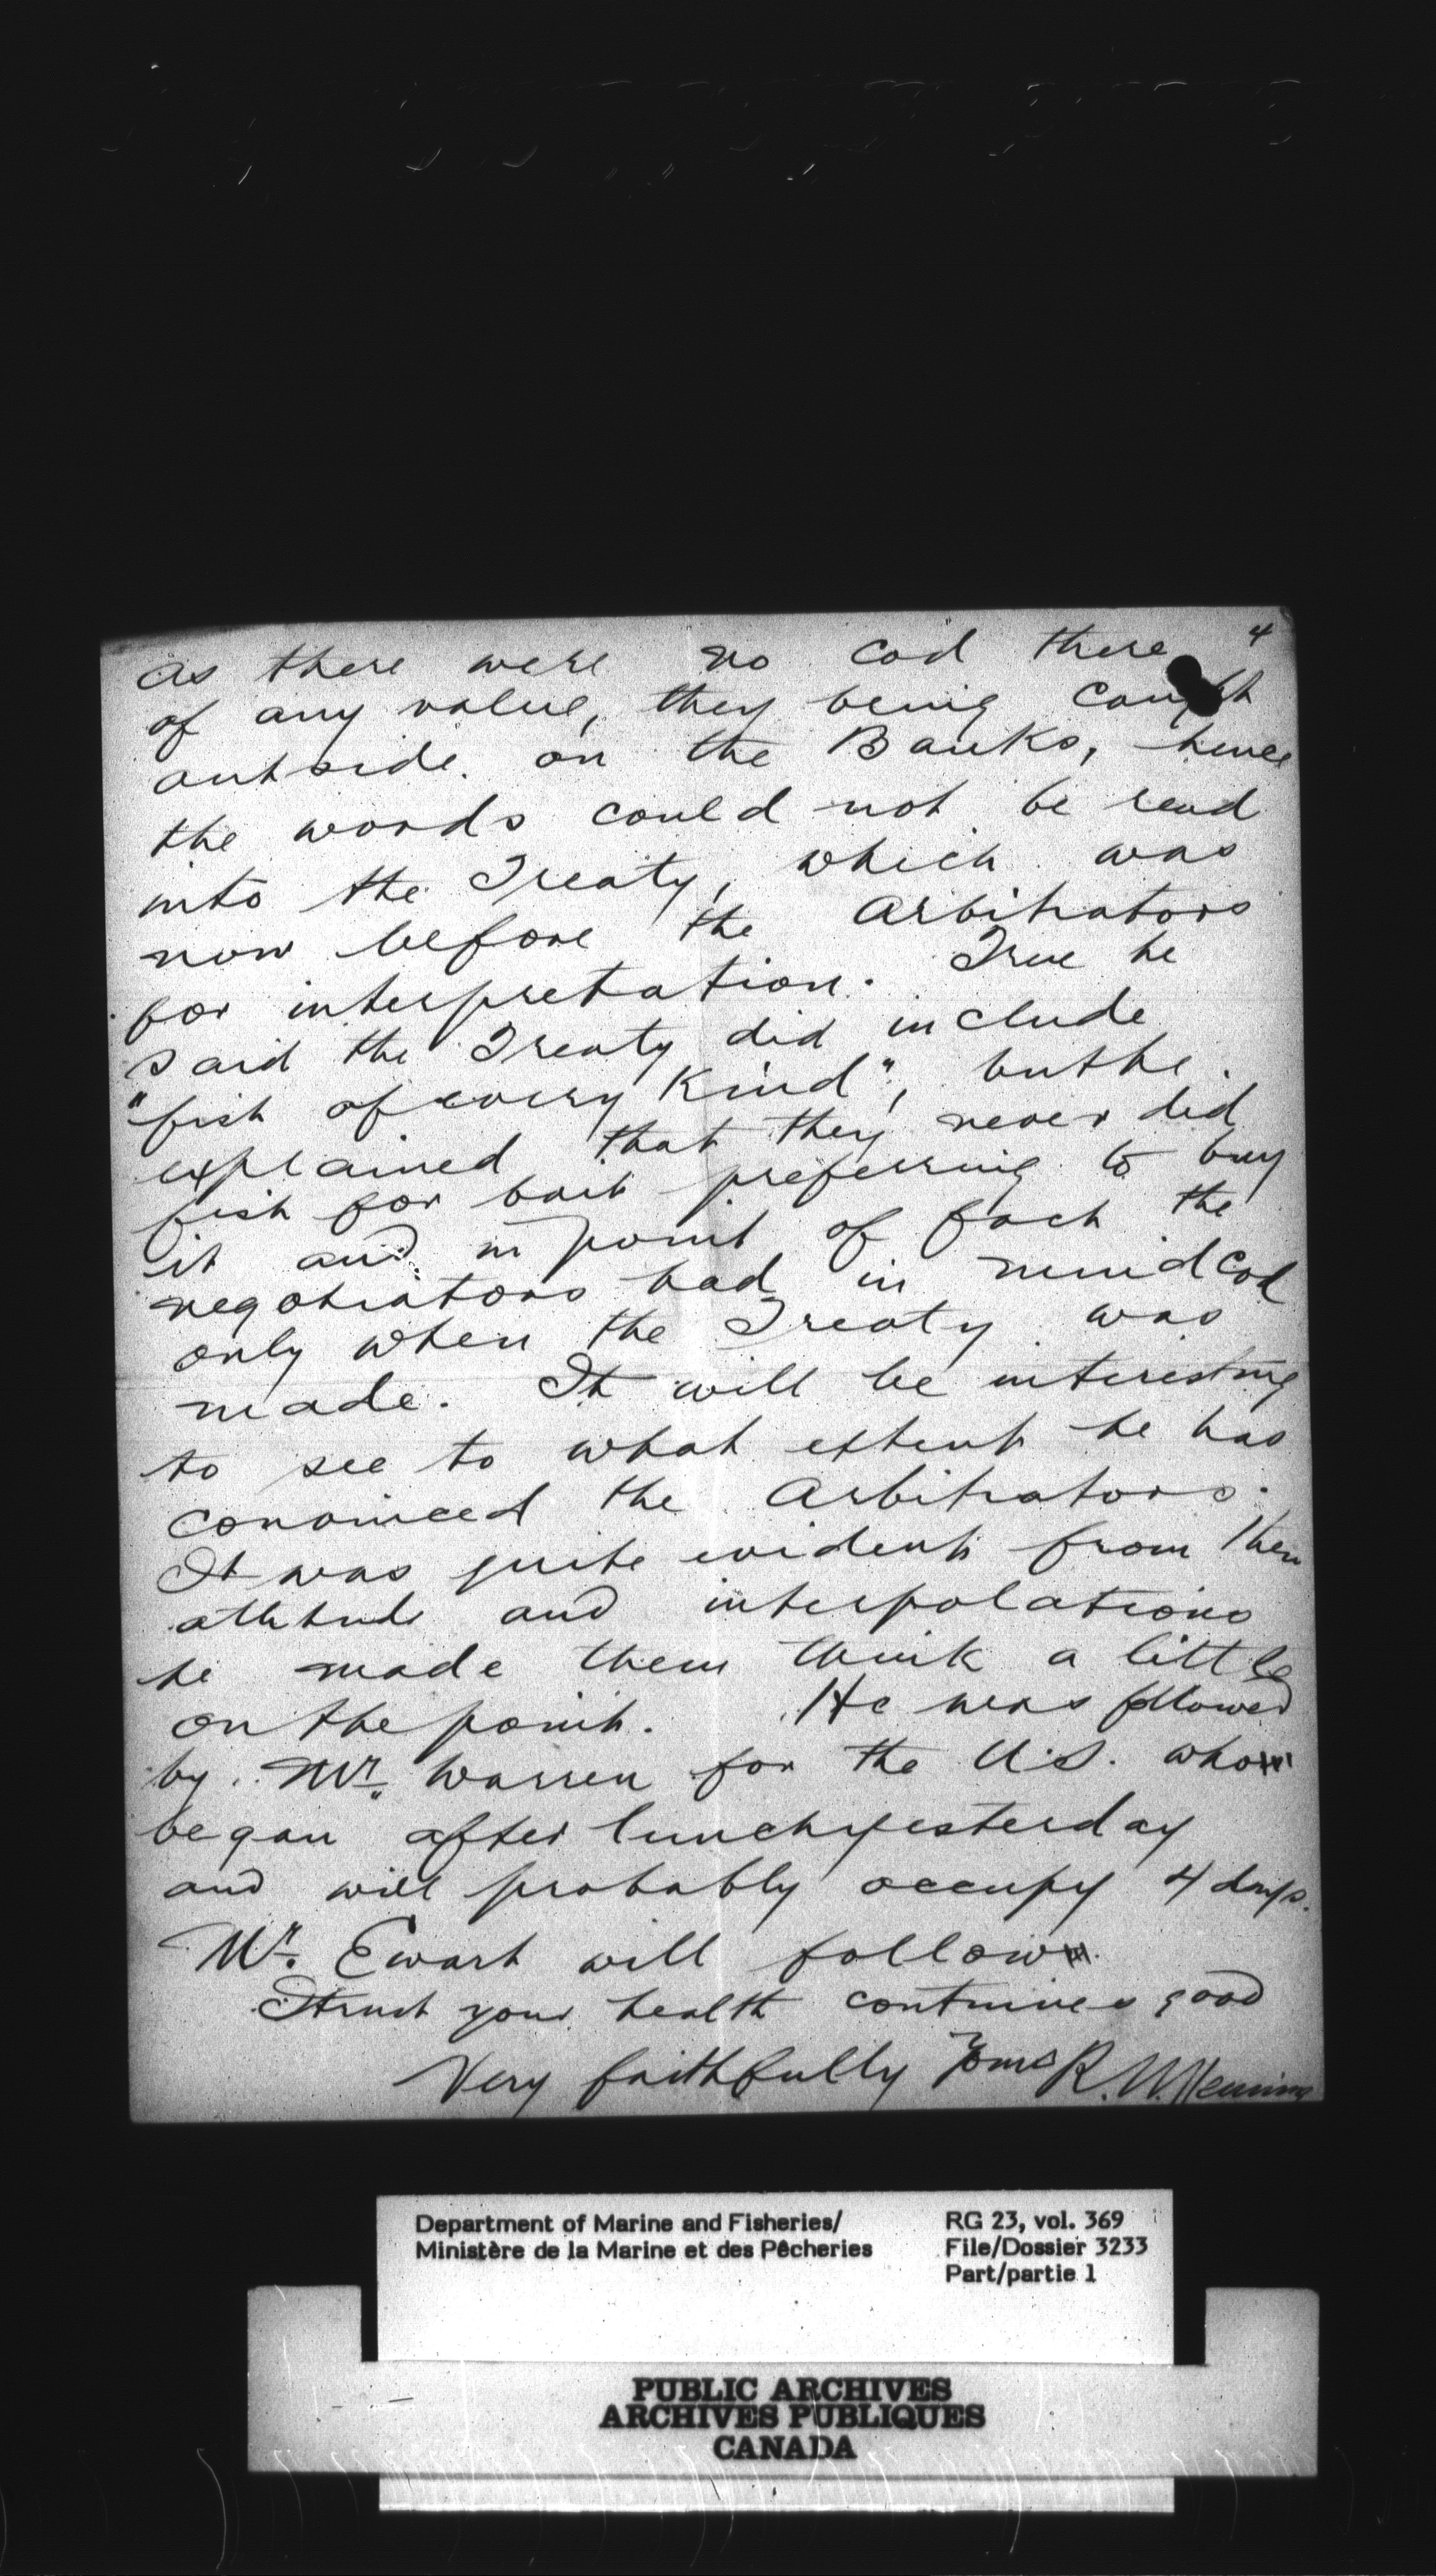 4
as there were no cod there
of any value, they being caught
outside on the Banks, hence
the words could not be read
into the Treaty, which was
now before the Arbitrators
for interpretation. True he
said the Treaty did include
"fish of every kind", but he
explained that they never did
fish for bait preferring to buy
it and in point of fact the
negotiators had in mind Cod
only when the Treaty was
made. It will be interesting
to see to what extent he has
convinced the Arbitrators.
It was quite evident from their
attitude and interpolations
he made them think a little
on the point. He was followed
by Mr. Warren for the U.S. who
began after lunch yesterday
and will probably occupy 4 days.
Mr. Ewart will follow
I trust your health continues good
Very faithfully Yours R. N. Venning
Department of Marine and Fisheries/
Ministère de la Marine et des Pêcheries
RG 23, vol. 369
File/Dossier 3233
Part/partie 1
PUBLIC ARCHIVES
ARCHIVES PUBLIQUES
CANADA